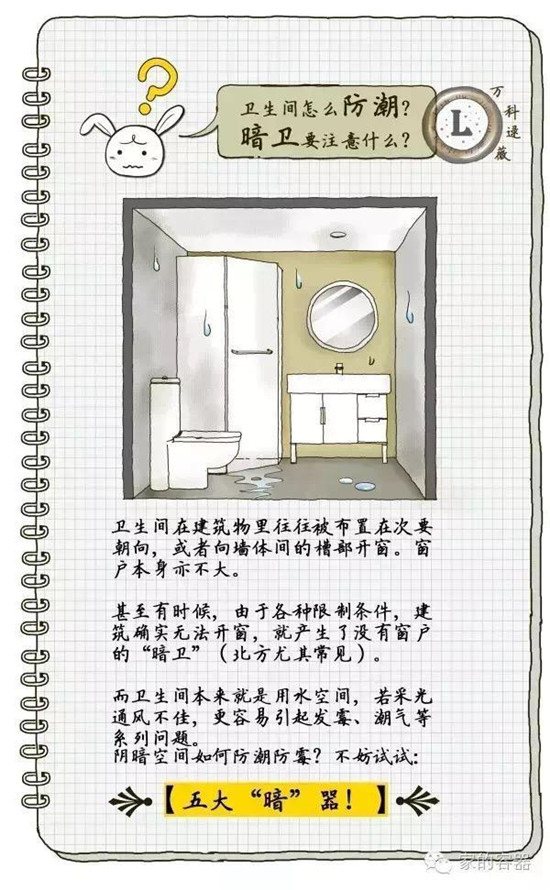 ?
卫生间怎么防潮？
暗卫要注意什么？
L
万科逯薇
卫生间在建筑物里往往被布置在次要
朝向，或者向墙体间的槽部开窗。窗
户本身亦不大。
甚至有时候，由于各种限制条件，建
筑确实无法开窗，就产生了没有窗户
的“暗卫”（北方尤其常见）。
而卫生间本来就是用水空间，若采光
通风不佳，更容易引起发霉、潮气等
系列问题。
阴暗空间如何防潮防霉？不妨试试：
【五大“暗”器！】
家的容器